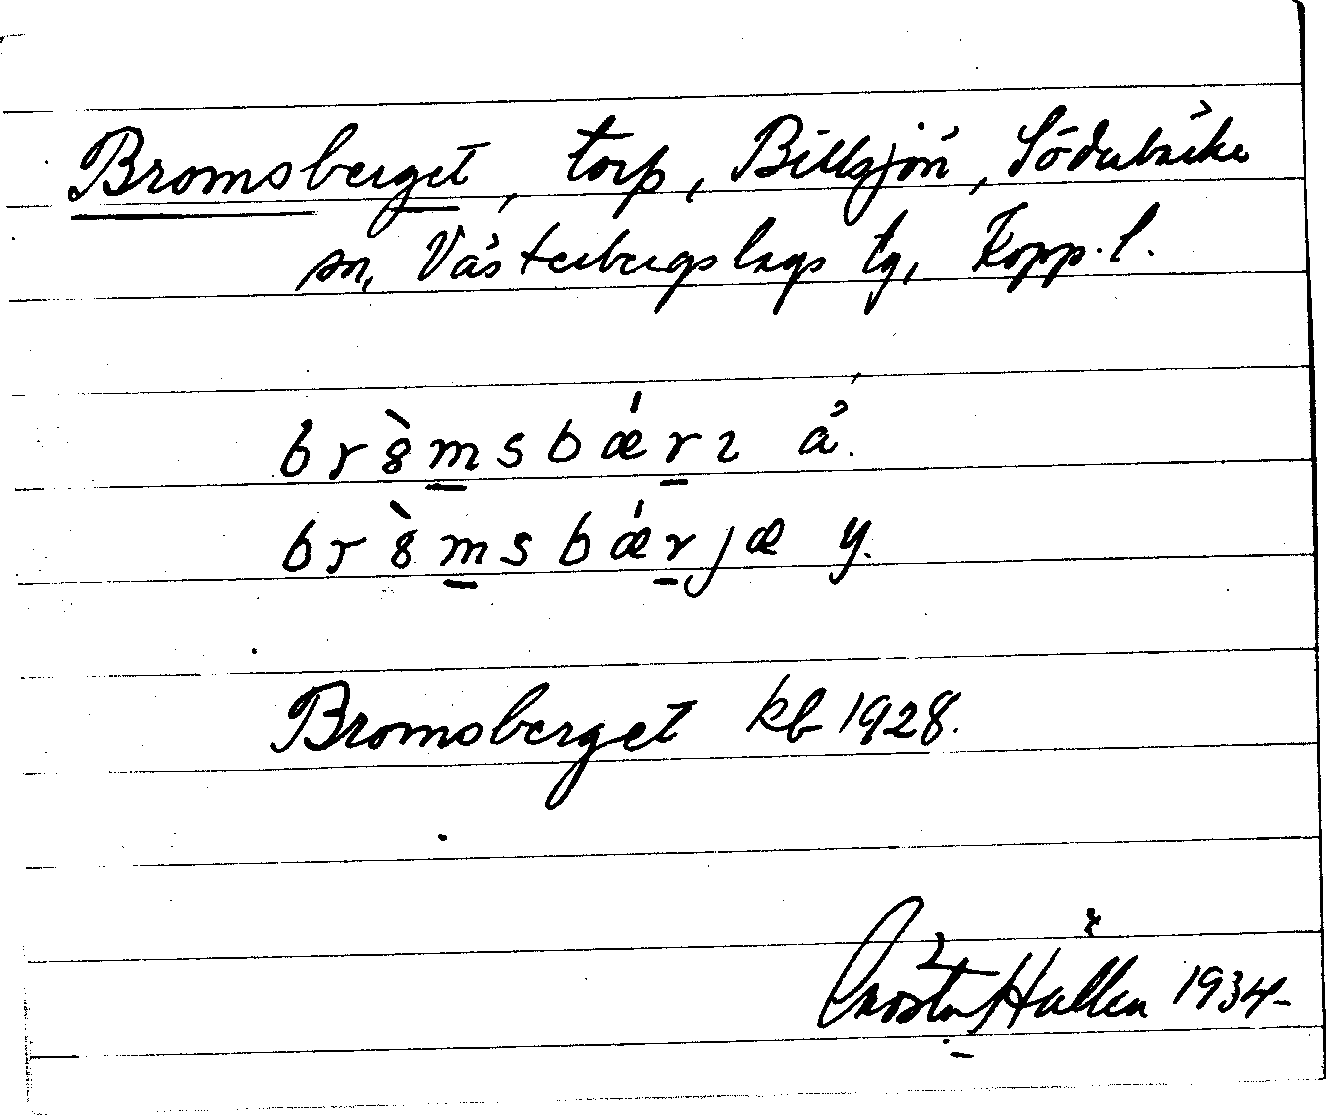 Bromsberget, torp, Billsjön, Söderbärke
sn, Västerbergslags tg, Kopp. l.
br8̀msbǽrı å.
br8̀msbǽrjæ y.
Bromsberget kb 1928.
Gösta Hallén 1934